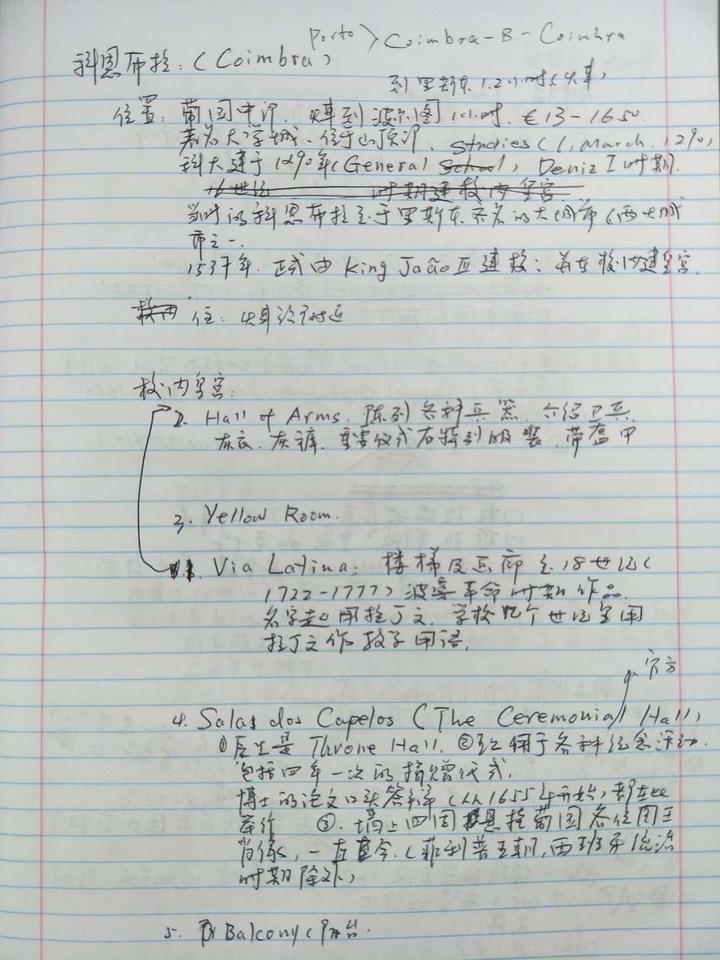 Porto > Coimbra-B - Coimbra
科恩布拉:(Coimbra)
到里斯本1.2小时(火车)
位置: 葡国中部. 火车到波尔图1小时. €13-16.50
著名大学城、位于山顶部. Studies (1, March, 1290)
科大建于1290年(General School), Deniz I 时期.
时期建校内皇宫
当时的科恩布拉是于里斯本齐名的大城市(两大城
市之一.
1537年. 正式由 King João III 建校; 并在校内建皇宫.
校内 位: 火车站附近
校内皇宫:
2. Hall of Arms. 陈列各种兵器. 介绍卫兵
灰衣、灰裤. 重要仪式有特别服装, 带盔甲
3. Yellow Room.
1. Via Latina: 楼梯及画廊是18世纪(
1722-1777) 改革革命时期作品.
名字起用拉丁文. 学校几个世纪采用
拉丁文作教学用语.
官方
4. Salas dos Capelos (The Ceremonial Hall)
①原先是 Throne Hall. ②现用于各种纪念活动.
包括四年一次的捐赠仪式.
博士的论文口头答辩(从1655年开始)都在此
举行 ③. 墙上四周悬挂葡国各位国王
肖像, 一直至今. (菲利普王朝, 西班牙统治
时期除外)
5. Balcony (阳台.